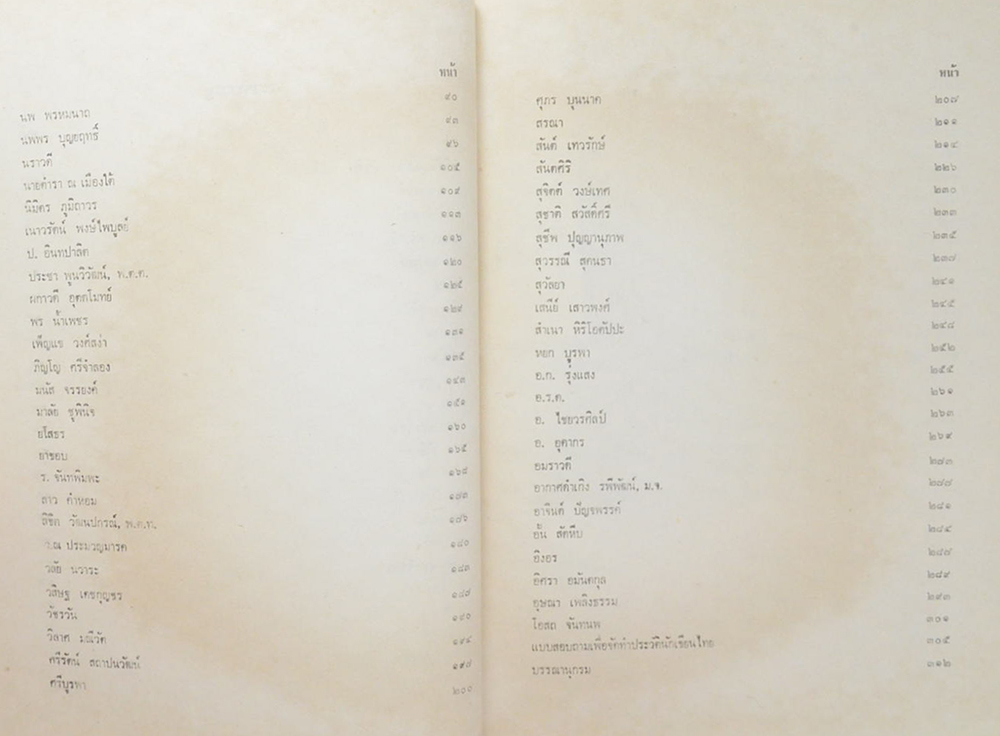 หน้า
นพ พรหมนาถ ๙๐
นพพร บุญยฤทธิ์ ๙๓
นราวดี ๙๖
นายตำรา ณ เมืองใต้ ๑๐๕
นิมิตร ภูมิถาวร ๑๐๙
เนาวรัตน์ พงษ์ไพบูลย์ ๑๑๓
ป. อินทปาลิต ๑๑๖
ประชา พูนวิวัฒน์, พ.ต.ต. ๑๒๐
ผกาวดี อุตตโมทย์ ๑๒๕
พร น้ำเพชร ๑๒๙
เพ็ญแข วงศ์สง่า ๑๓๑
ภิญโญ ศรีจำลอง ๑๓๕
มนัส จรรยงค์ ๑๔๓
มาลัย ชูพินิจ ๑๕๑
ยโสธร ๑๖๐
ยาขอบ ๑๖๕
ร. จันทพิมพะ ๑๖๘
ลาว คำหอม
ลิขิต วัฒนปกรณ์, พ.ต.ท.
ว.ณ ประมวญมารค ๑๘๐
วลัย นวาระ ๑๘๓
วสิษฐ เดชกุญชร
วัชรวัน ๑๙๐
วิลาศ มณีวัต ๑๙๔
ศรีรัตน์ สถาปนวัฒน์ ๑๙๘
ศรีบูรพา ๒๐๐
หน้า
ศุภร บุนนาค ๒๐๗
สรณา ๒๑๑
สันต์ เทวรักษ์ ๒๑๔
สันตศิริ ๒๒๖
สุจิตต์ วงษ์เทศ ๒๓๐
สุชาติ สวัสดิ์ศรี ๒๓๓
สุชีพ ปุญญานุภาพ ๒๓๕
สุวรรณี สุคนธา ๒๓๗
สุวัลยา ๒๔๑
เสนีย์ เสาวพงศ์ ๒๔๕
สำเนา หิริโอตัปปะ ๒๔๘
หยก บูรพา ๒๕๒
อ.ก. รุ่งแสง ๒๕๕
อ.ร.ด. ๒๖๑
อ. ไชยวรศิลป์ ๒๖๓
อ. อุดากร ๒๖๙
อมราวดี ๒๗๓
อากาศดำเกิง รพีพัฒน์, ม.จ.
อาจินต์ ปัญจพรรค์ ๒๘๑
อ้น สัตหีบ ๒๘๔
อิงอร ๒๘๗
อิศรา อมันตกุล ๒๘๙
อุษณา เพลิงธรรม ๒๙๓
โอสถ จันทนพ ๓๐๑
แบบสอบถามเพื่อจัดทำประวัตินักเขียนไทย ๓๐๕
บรรณานุกรม ๓๑๒